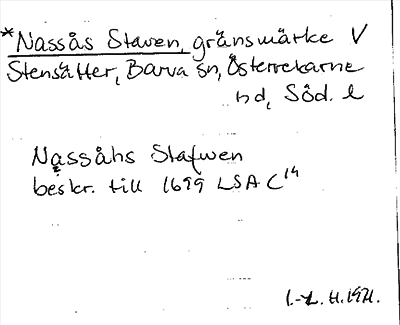 *Nassås Staven, gränsmärke V
Stensätter, Barva sn, Österrekarne
hd, Söd. l
Nassåhs Stafwen
beskr. till 1699 LSA C14
H. 1971.